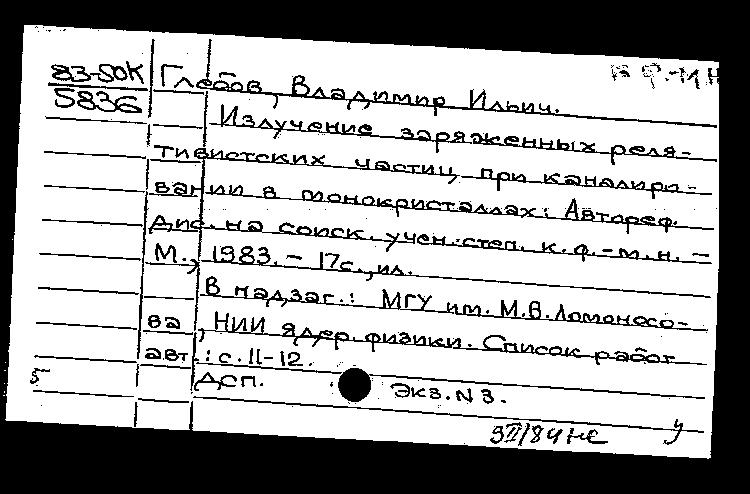 83-50К Глебов, Владимир Ильич.
5836
Излучение заряженных реля-
тивистских частиц при каналири-
вании в монокристаллах: Автореф.
Дис. на соиск. учен. степ. к. ф.-м. н. –
М., 1983. – 17с., ил.
В надзаг.: МГУ им. М.В.Ломоносо-
ва, НИИ ядер. физики. Список работ
авт.: с. 11-12.
5 ДСП. Экз. N 3.
у